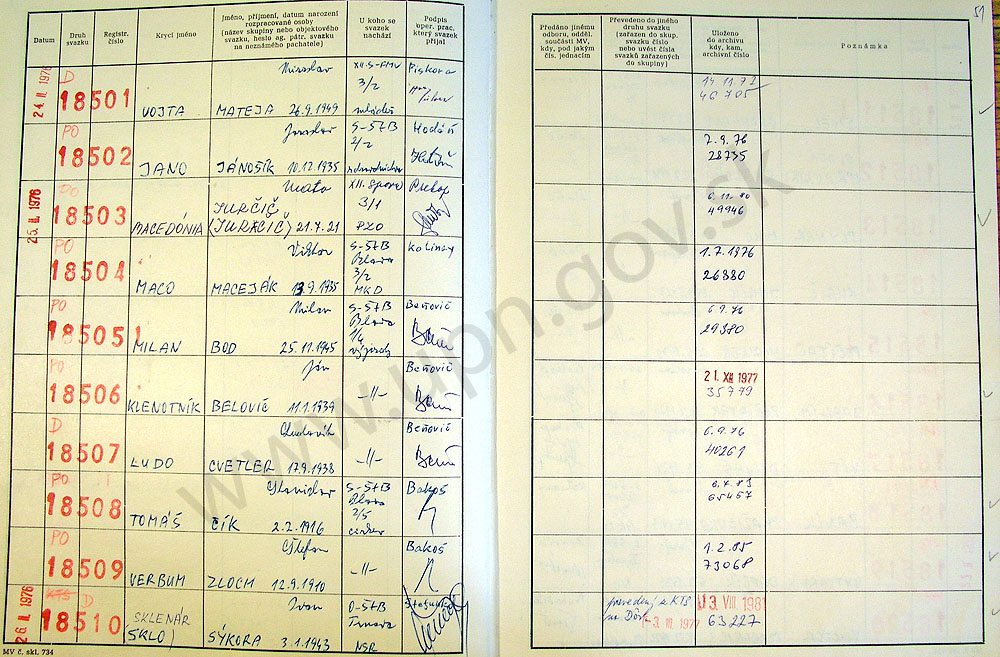 51
Datum
Druh svazku
Registr. číslo
Krycí jméno
Jméno, příjmení, datum narození
rozpracované osoby
(název skupiny nebo objektového
svazku, heslo ag. pátr. svazku
na neznámého pachatele)
U koho se
svazek
nachází
Podpis
oper. prac.
který svazek
přijal
Předáno jinému
odboru, odděl.
součásti MV,
kdy, pod jakým
čís. jednacím
Převedeno do jiného
druhu svazku
(zařazen do skup.
svazku číslo
nebo uvést čísla
svazků zařazených
do skupiny)
Uloženo
do archivu
kdy, kam,
archivní číslo
Poznámka
24. II. 1976
D
18501
VOJTA
Miroslav
MATEJA 26.9.1949
3/2
Piskora
46705
PO
18502
JANO
Jaroslav
JÁNOŠÍK 10.12.1935
S-ŠtB
2/2
7.9.76
28735
25. II. 1976
PO
18503
MACEDÓNIA
JURČIČ
(JURKČIČ) 21.7.21
3/1
PZO
6.11.80
49946
PO
18504
MACO
Viktor
MACEJÁK 13.9.1935
S-ŠtB
Blava
3/2
MKD
Kolinzy
1.7.1976
26880
PO
18505
MILAN
Milan
BOD 25.11.1945
S-ŠtB
Blava
1/4
výjezdy
Beňovič
6.9.76
29380
PO
18506
KLENOTNÍK
Ján
BELOVIČ 11.1.1939
-||-
Beňovič
21. XII 1977
35799
D
18507
LUDO
Ľudovít
CVETLER 17.9.1938
-||-
Beňovič
6.9.76
40261
PO
18508
TOMÁŠ
Stanislav
ČÍK 2.2.1916
S-ŠtB
Blava
2/5
Bakoš
65457
PO
18509
VERBUM
Štefan
ZLOCH 12.9.1910
-||-
Bakoš
1.2.85
73068
26. II. 1976
KTS D
18510
SKLENÁR
(SKLO)
Ivan
SÝKORA 3.1.1943
O-ŠtB
Trnava
NSR
prevedený z KTS
-3. III. 1977
13. VIII. 1981
63227
MV č. skl. 734
www.upn.gov.sk